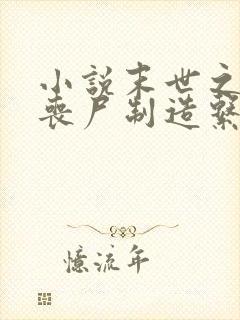 小说末世之
丧尸制造系
憶流年